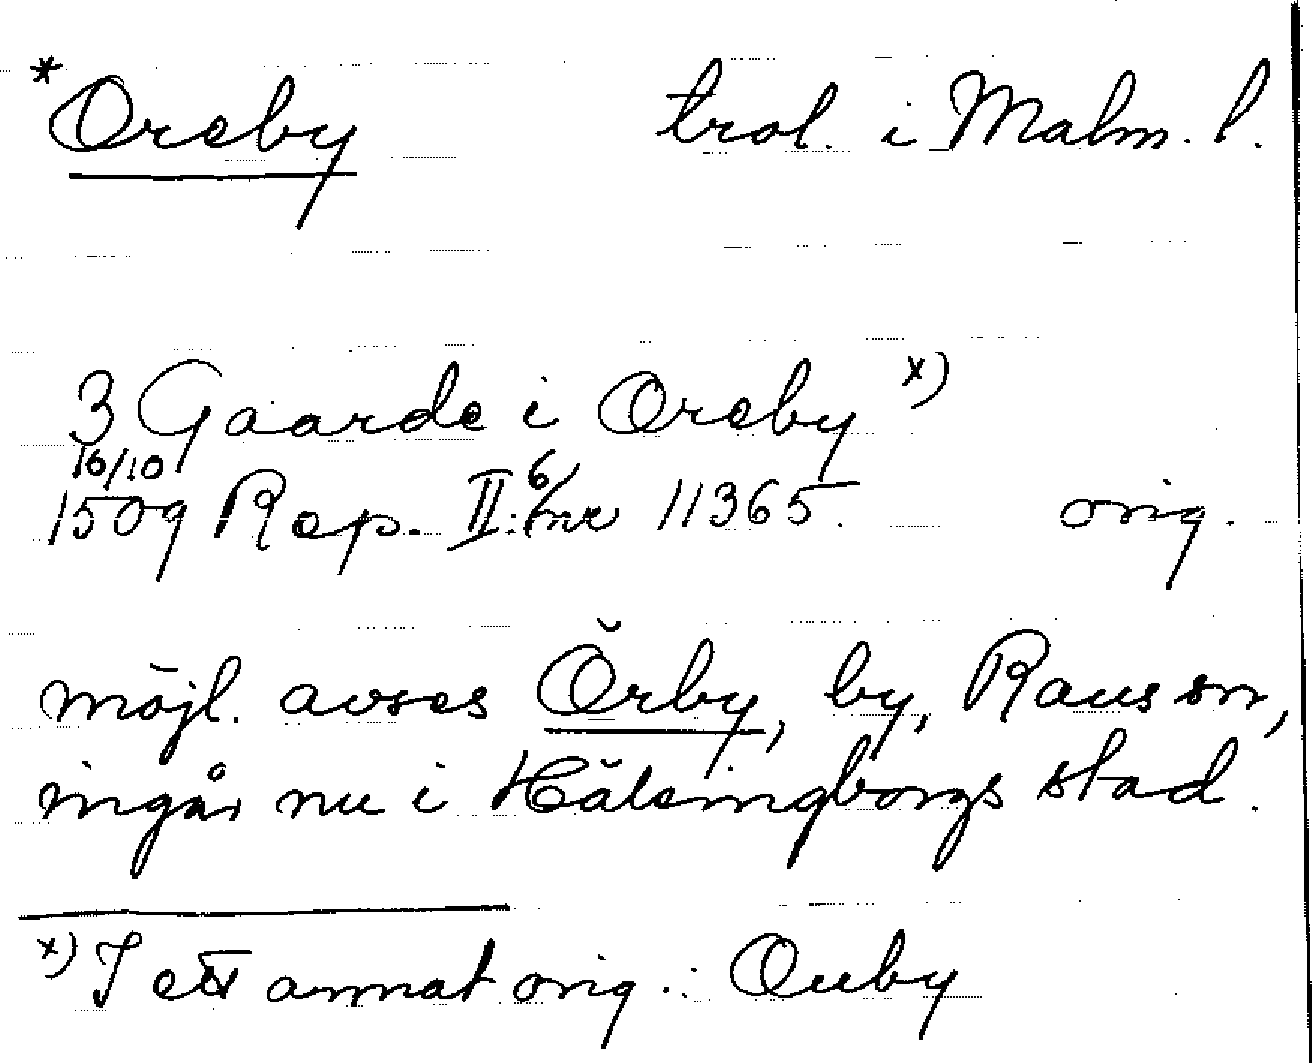 *Oreby trol. i Malm. l.
3 Gaarde i Oreby x)
16/10
1509 Rep. II:6/nr 11365. orig.
möjl. avses Örby, by, Raus sn,
ingår nu i Hälsingborgs stad.
x) I ett annat orig.: Ouby